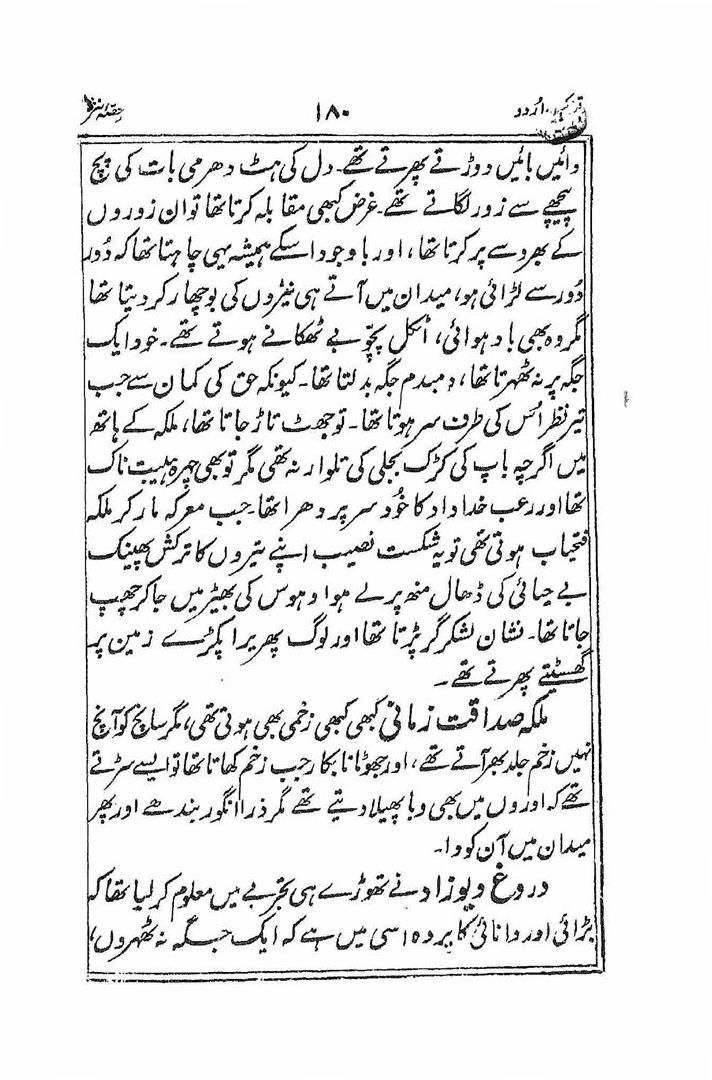 اُردو ۱۸۰ حصّہ نثر
دائیں بائیں دوڑتے پھرتے تھے۔ دل کی ہٹ دھرمی بات کی پچ
پیچھے سے زور لگاتے تھے۔ غرض کبھی مقابلہ کرتا تھا تو ان زوروں
کے بھروسے پر کرتا تھا، اور باوجود اسکے ہمیشہ یہی چاہتا تھا کہ دُور
دُور سے لڑائی ہو، میدان میں آتے ہی تیروں کی بوچھار کر دیتا تھا
مگر وہ بھی باد ہوائی، اٹکل پچّو بے ٹھکانے ہوتے تھے۔ خود ایک
جگہ پر نہ ٹھہرتا تھا، دمبدم جگہ بدلتا تھا۔ کیونکہ حق کی کمان سے جب
تیر نظر اُس کی طرف سر ہوتا تھا۔ تو جھٹ تاڑ جاتا تھا، ملکہ کے ہاتھ
میں اگرچہ باپ کی کڑک بجلی کی تلوار نہ تھی مگر تو بھی چہرہ ہیبت ناک
تھا اور رعب خداداد کا خُود سر پر دھرا تھا۔ جب معرکہ مار کر ملکہ
فتحیاب ہوتی تھی تو یہ شکست نصیب اپنے تیروں کا ترکش پھینک
بے حیائی کی ڈھال منھ پر لے ہوا و ہوس کی بھیڑ میں جا کر چھپ
جاتا تھا۔ نشان لشکر گر پڑتا تھا اور لوگ پھریرا پکڑے زمین پر
گھسیٹتے پھرتے تھے۔
ملکہ صداقت زمانی کبھی کبھی زخمی بھی ہوتی تھی، مگر سانچ کو آنچ
نہیں زخم جلد بھر آتے تھے، اور جھوٹا نابکار جب زخم کھاتا تھا تو ایسے سڑتے
تھے کہ اوروں میں بھی وبا پھیلا دیتے تھے مگر ذرا انگور بندھے اور پھر
میدان میں آن کودا۔
دروغ دیوزاد نے تھوڑے ہی تجربے میں معلوم کر لیا تھا کہ
بڑائی اور دانائی کا پردہ اسی میں ہے کہ ایک جگہ نہ ٹھہروں،